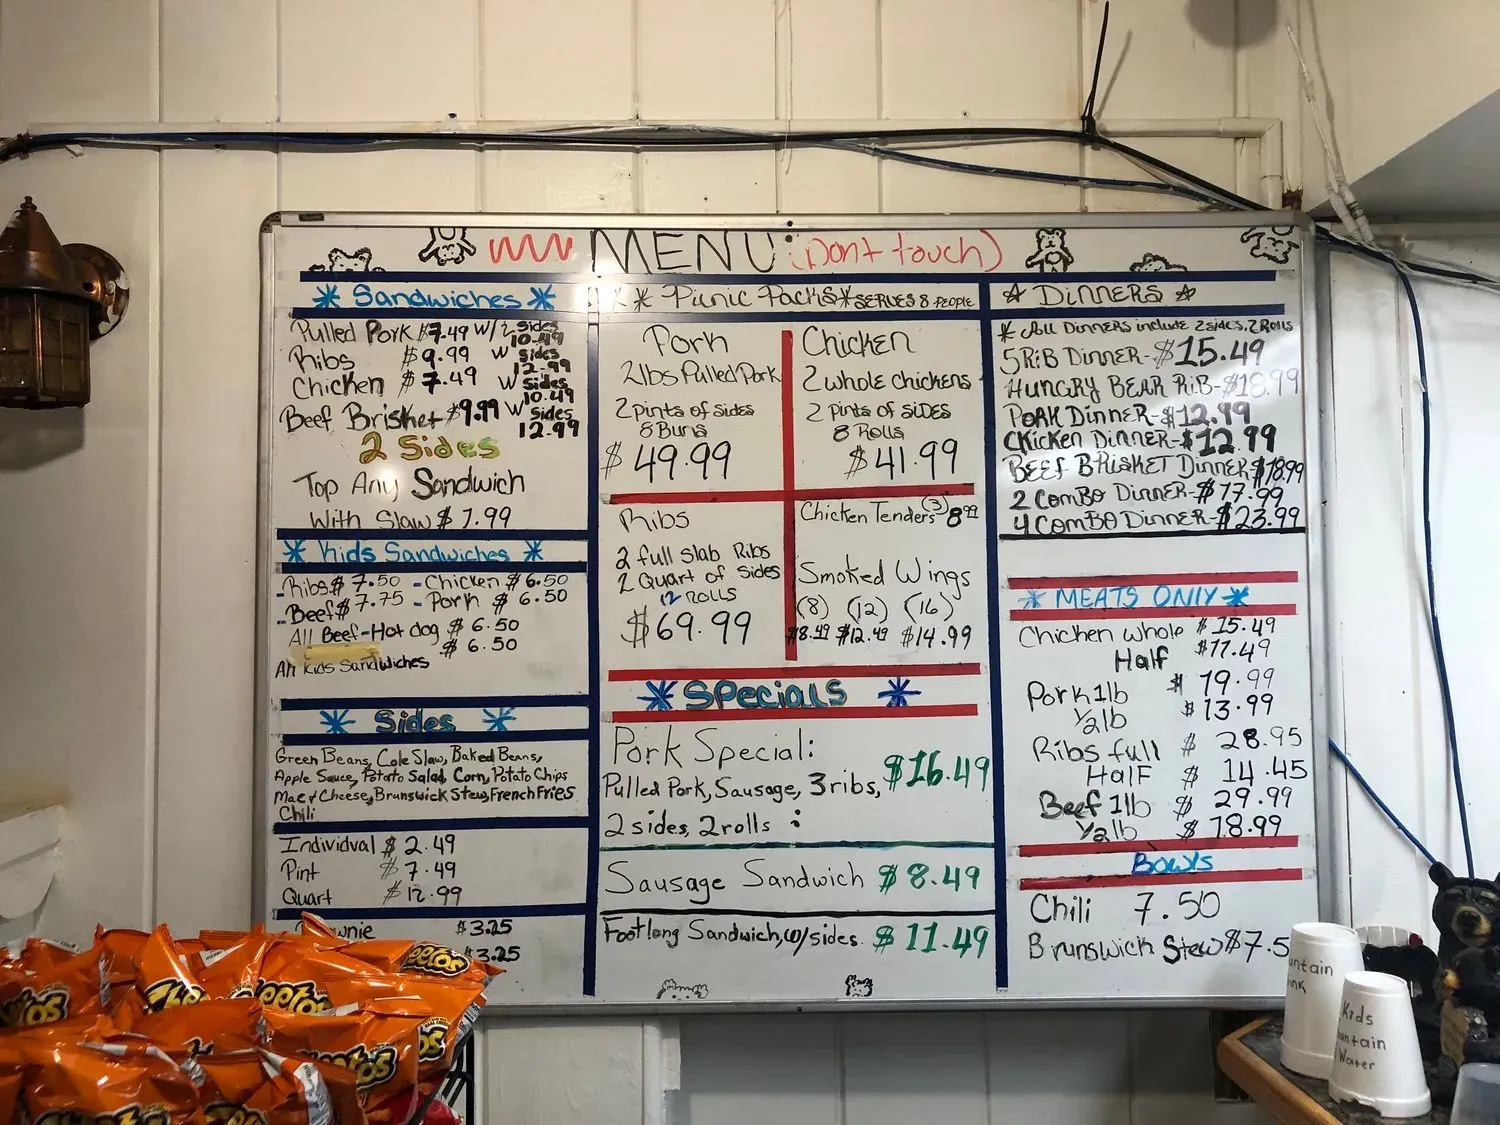 MENU: (Dont touch)
Sandwiches
Pulled Pork $7.49 W/2 sides 10.49
Ribs $9.99 W sides 12.99
Chicken $7.49 W sides 10.49
Beef Brisket $9.99 W sides 12.99
2 Sides
Top Any Sandwich
With Slaw $1.99
Kids Sandwiches
Ribs $7.50 - Chicken $6.50
Beef $7.75 - Pork $6.50
All Beef-Hot dog $6.50
$6.50
All Kids Sandwiches
Sides
Green Beans, Cole Slaw, Baked Beans,
Apple Sauce, Potato Salad, Corn, Potato Chips
Mac & Cheese, Brunswick Stew, French Fries
Chili
Individual $2.49
Pint $7.49
Quart $12.99
$3.25
$3.25
Picnic Packs SERVES 8 PEOPLE
Pork
2lbs Pulled Pork
2 pints of sides
8 Buns
$49.99
Chicken
2 whole chickens
2 pints of sides
8 Rolls
$41.99
Ribs
2 full slab Ribs
2 Quart of sides
12 Rolls
$69.99
Chicken Tenders (3) 8.99
Smoked Wings
(8) (12) (16)
$8.49 $12.49 $14.99
Specials
Pork Special:
Pulled Pork, Sausage, 3 ribs, $16.49
2 sides, 2 rolls
Sausage Sandwich $8.49
Footlong Sandwich, w/sides. $11.49
DINNERS
* All Dinners include 2 sides, 2 Rolls
5 Rib Dinner-$15.49
Hungry Bear Rib-$18.99
Pork Dinner-$12.99
Chicken Dinner-$12.99
Beef Brisket Dinner $18.99
2 Combo Dinner-$17.99
4 Combo Dinner-$23.99
MEATS ONLY
Chicken whole $15.49
Half $11.49
Pork 1lb $19.99
1/2lb $13.99
Ribs full $28.95
Half $14.45
Beef 1lb $29.99
1/2lb $18.99
Bowls
Chili 7.50
Brunswick Stew $7.5
Kids
Water
Cheetos